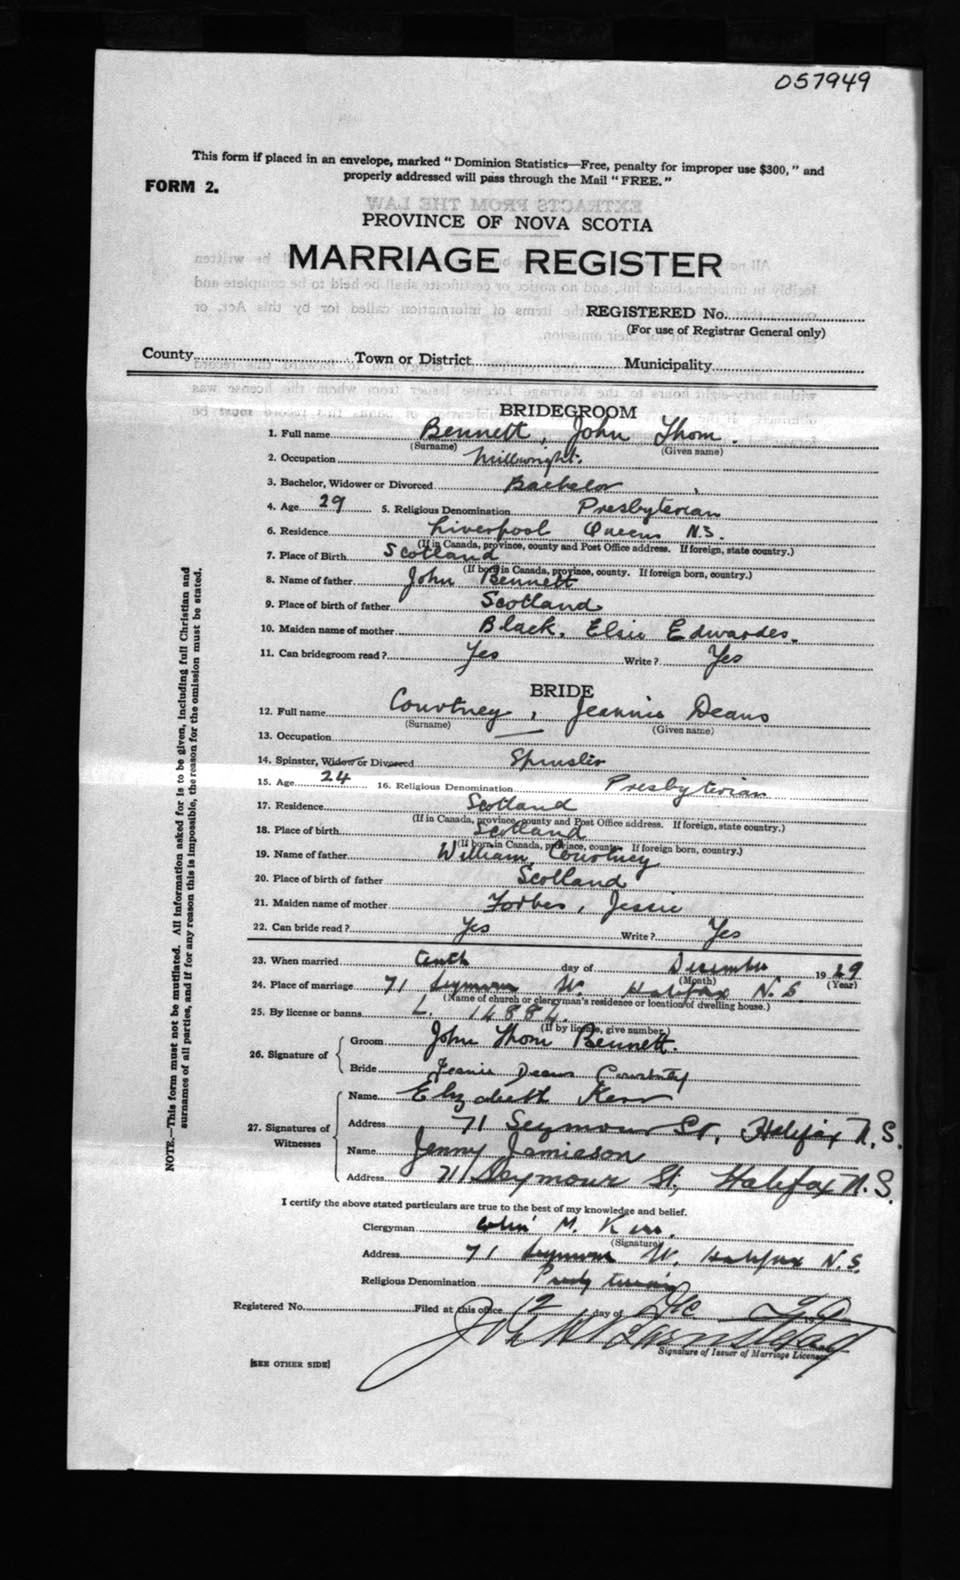 057949
This form if placed in an envelope, marked "Dominion Statistics—Free, penalty for improper use $300," and
properly addressed will pass through the Mail "FREE."
FORM 2.
PROVINCE OF NOVA SCOTIA
MARRIAGE REGISTER
REGISTERED No.
(For use of Registrar General only)
County Town or District Municipality
BRIDEGROOM
1. Full name Bennett, John Thom.
(Surname) (Given name)
2. Occupation Millwright.
3. Bachelor, Widower or Divorced Bachelor
4. Age 29 5. Religious Denomination Presbyterian
6. Residence Liverpool Queens N.S.
(If in Canada, province, county and Post Office address. If foreign, state country.)
7. Place of Birth Scotland
(If born in Canada, province, county. If foreign born, country.)
8. Name of father John Bennett
9. Place of birth of father Scotland
10. Maiden name of mother Black, Elsie Edwardes.
11. Can bridegroom read? Yes Write? Yes
BRIDE
12. Full name Courtney, Jeannie Deans
(Surname) (Given name)
13. Occupation —
14. Spinster, Widow or Divorced Spinster
15. Age 24 16. Religious Denomination Presbyterian
17. Residence Scotland
(If in Canada, province, county and Post Office address. If foreign, state country.)
18. Place of birth Scotland
(If born in Canada, province, county. If foreign born, country.)
19. Name of father William, Courtney
20. Place of birth of father Scotland
21. Maiden name of mother Forbes, Jessie
22. Can bride read? Yes Write? Yes
23. When married tenth day of December 1929
(Month) (Year)
24. Place of marriage 71 Seymour St. Halifax N.S.
(Name of church or clergyman's residence or location of dwelling house.)
25. By license or banns L. 14884.
(If by license, give number.)
26. Signature of Groom John Thom Bennett.
Bride Jeanie Deans Courtney
27. Signatures of Witnesses Name Elizabeth Kerr
Address 71 Seymour St, Halifax N.S.
Name Jenny Jamieson
Address 71 Seymour St, Halifax N.S.
I certify the above stated particulars are true to the best of my knowledge and belief.
Clergyman Colin M. Kerr.
(Signature)
Address 71 Seymour St. Halifax N.S.
Religious Denomination Presbyterian
Registered No. Filed at this office 12 day of Dec 19
Signature of Issuer of Marriage Licenses
[SEE OTHER SIDE]
NOTE.—This form must not be mutilated. All information asked for is to be given, including full Christian and
surnames of all parties, and if for any reason this is impossible, the reason for the omission must be stated.